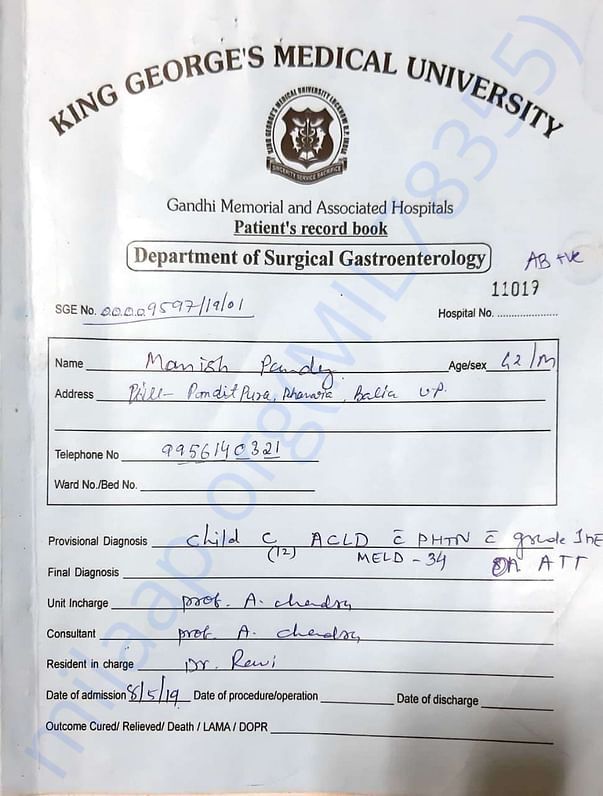 KING GEORGE'S MEDICAL UNIVERSITY
KING GEORGE'S MEDICAL UNIVERSITY LUCKNOW U.P. INDIA
SINCERITY SERVICE SACRIFICE
Gandhi Memorial and Associated Hospitals
Patient's record book
Department of Surgical Gastroenterology
AB +ve
SGE No. 00009597/19/01
11017
Hospital No. ....................
Name Manish Pandy Age/sex 42/M
Address Vill- Pandit Pura, Balia U.P.
Telephone No 9956140321
Ward No./Bed No.
Provisional Diagnosis Child C (12) ACLD c̄ PHTN c̄ grade I HE
MELD - 34 ATT
Final Diagnosis
Unit Incharge prof. A. chandra
Consultant prof. A. chandra
Resident in charge Dr. Ravi
Date of admission 8/5/19 Date of procedure/operation Date of discharge
Outcome Cured/ Relieved/ Death / LAMA / DOPR
milaap.org(MIL78355)